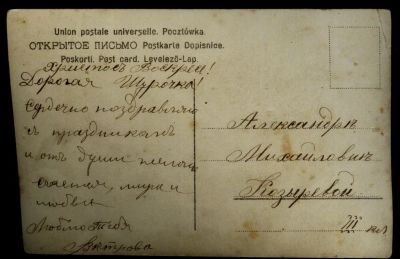 Union postale universelle. Pocztówka.
ОТКРЫТОЕ ПИСЬМО Postkarte Dopisnice.
Poskorti. Post card. Levelező-Lap.
Христосъ Воскресъ!
Дорогая Шурочка!
Сердечно поздравляю
съ праздникомъ
и отъ души желаю
счастья, мира и
любви.
Любящая
Александрѣ
Михайловнѣ
Козыревой
III кл